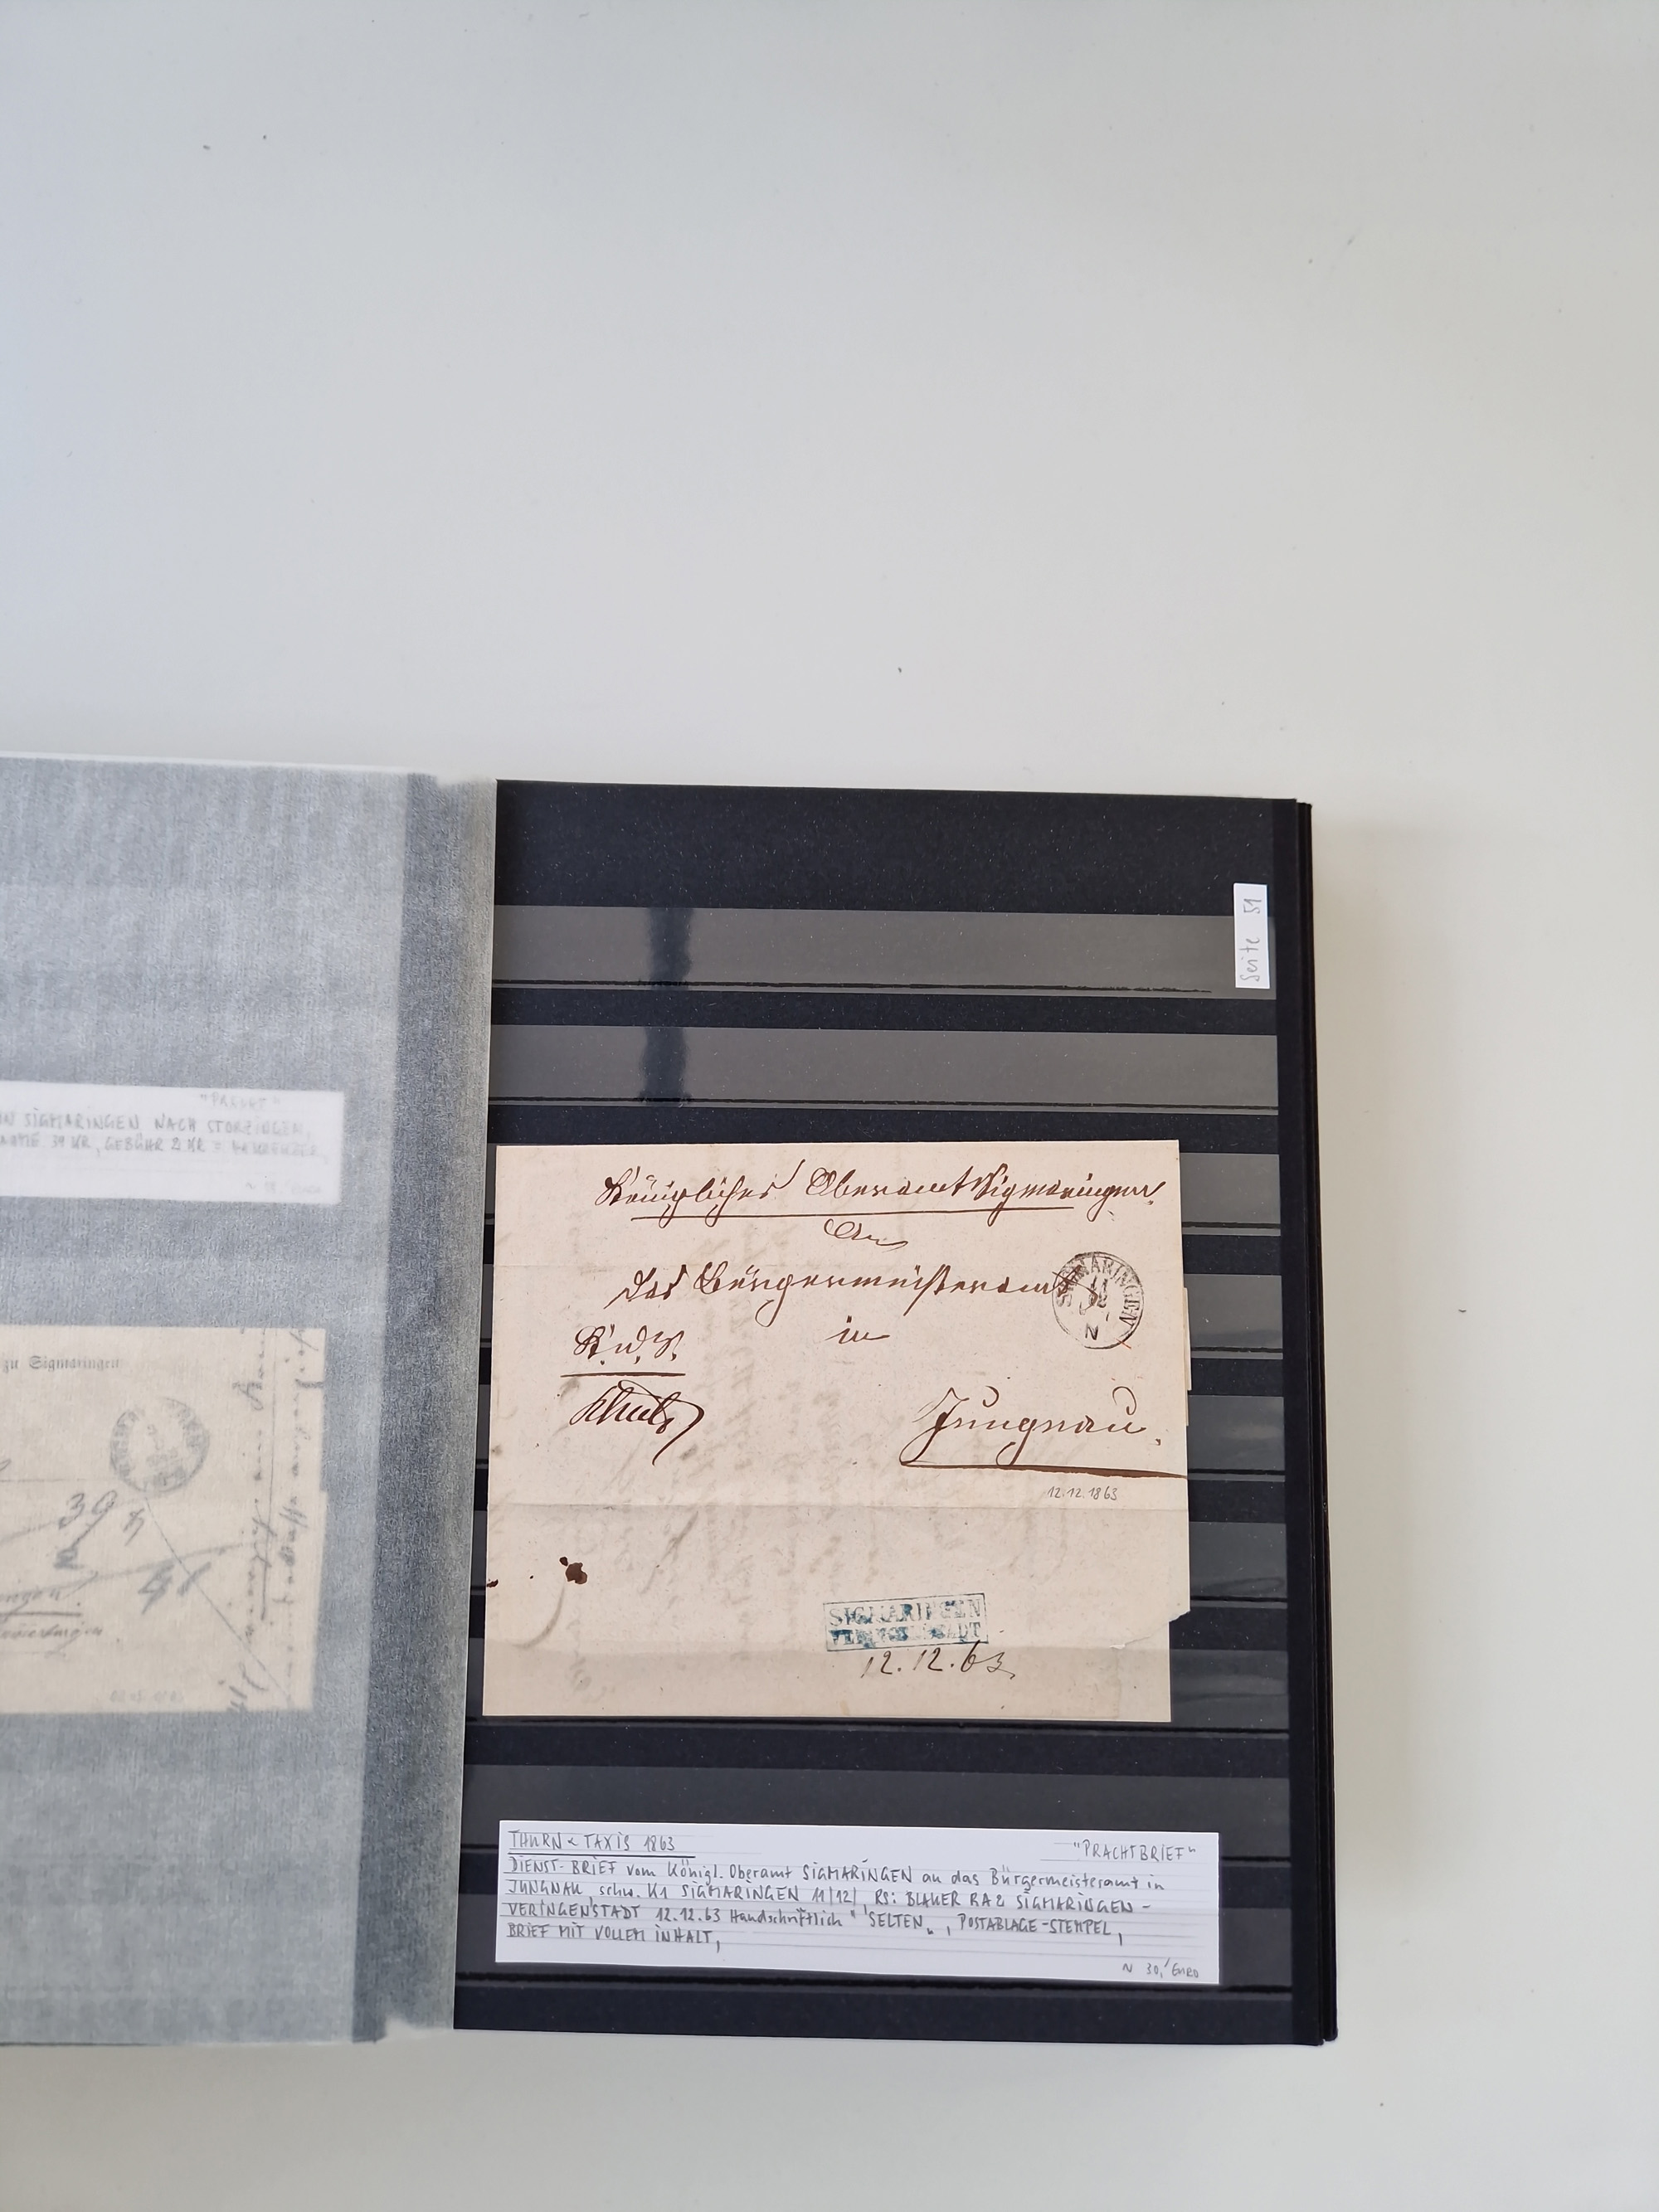 Seite 51
"PRACHT"
SIGMARINGEN NACH STORZINGEN,
39 KR, GEBÜHR 2 KR =
zu Sigmaringen
39
41
Königliches Oberamt Sigmaringen
An
das Bürgermeisteramt
in
SIGMARINGEN
11
12
N
Jungnau.
12.12.1863
SIGMARINGEN
VERINGENSTADT
12.12.63.
THURN & TAXIS 1863
"PRACHTBRIEF"
DIENST-BRIEF vom Königl. Oberamt SIGMARINGEN an das Bürgermeisteramt in
JUNGNAU, schw. K1 SIGMARINGEN 11/12/, RS: BLAUER RA2 SIGMARINGEN-
VERINGENSTADT 12.12.63 Handschriftlich "SELTEN", POSTABLAGE-STEMPEL,
BRIEF MIT VOLLEM INHALT,
~ 30,' EURO